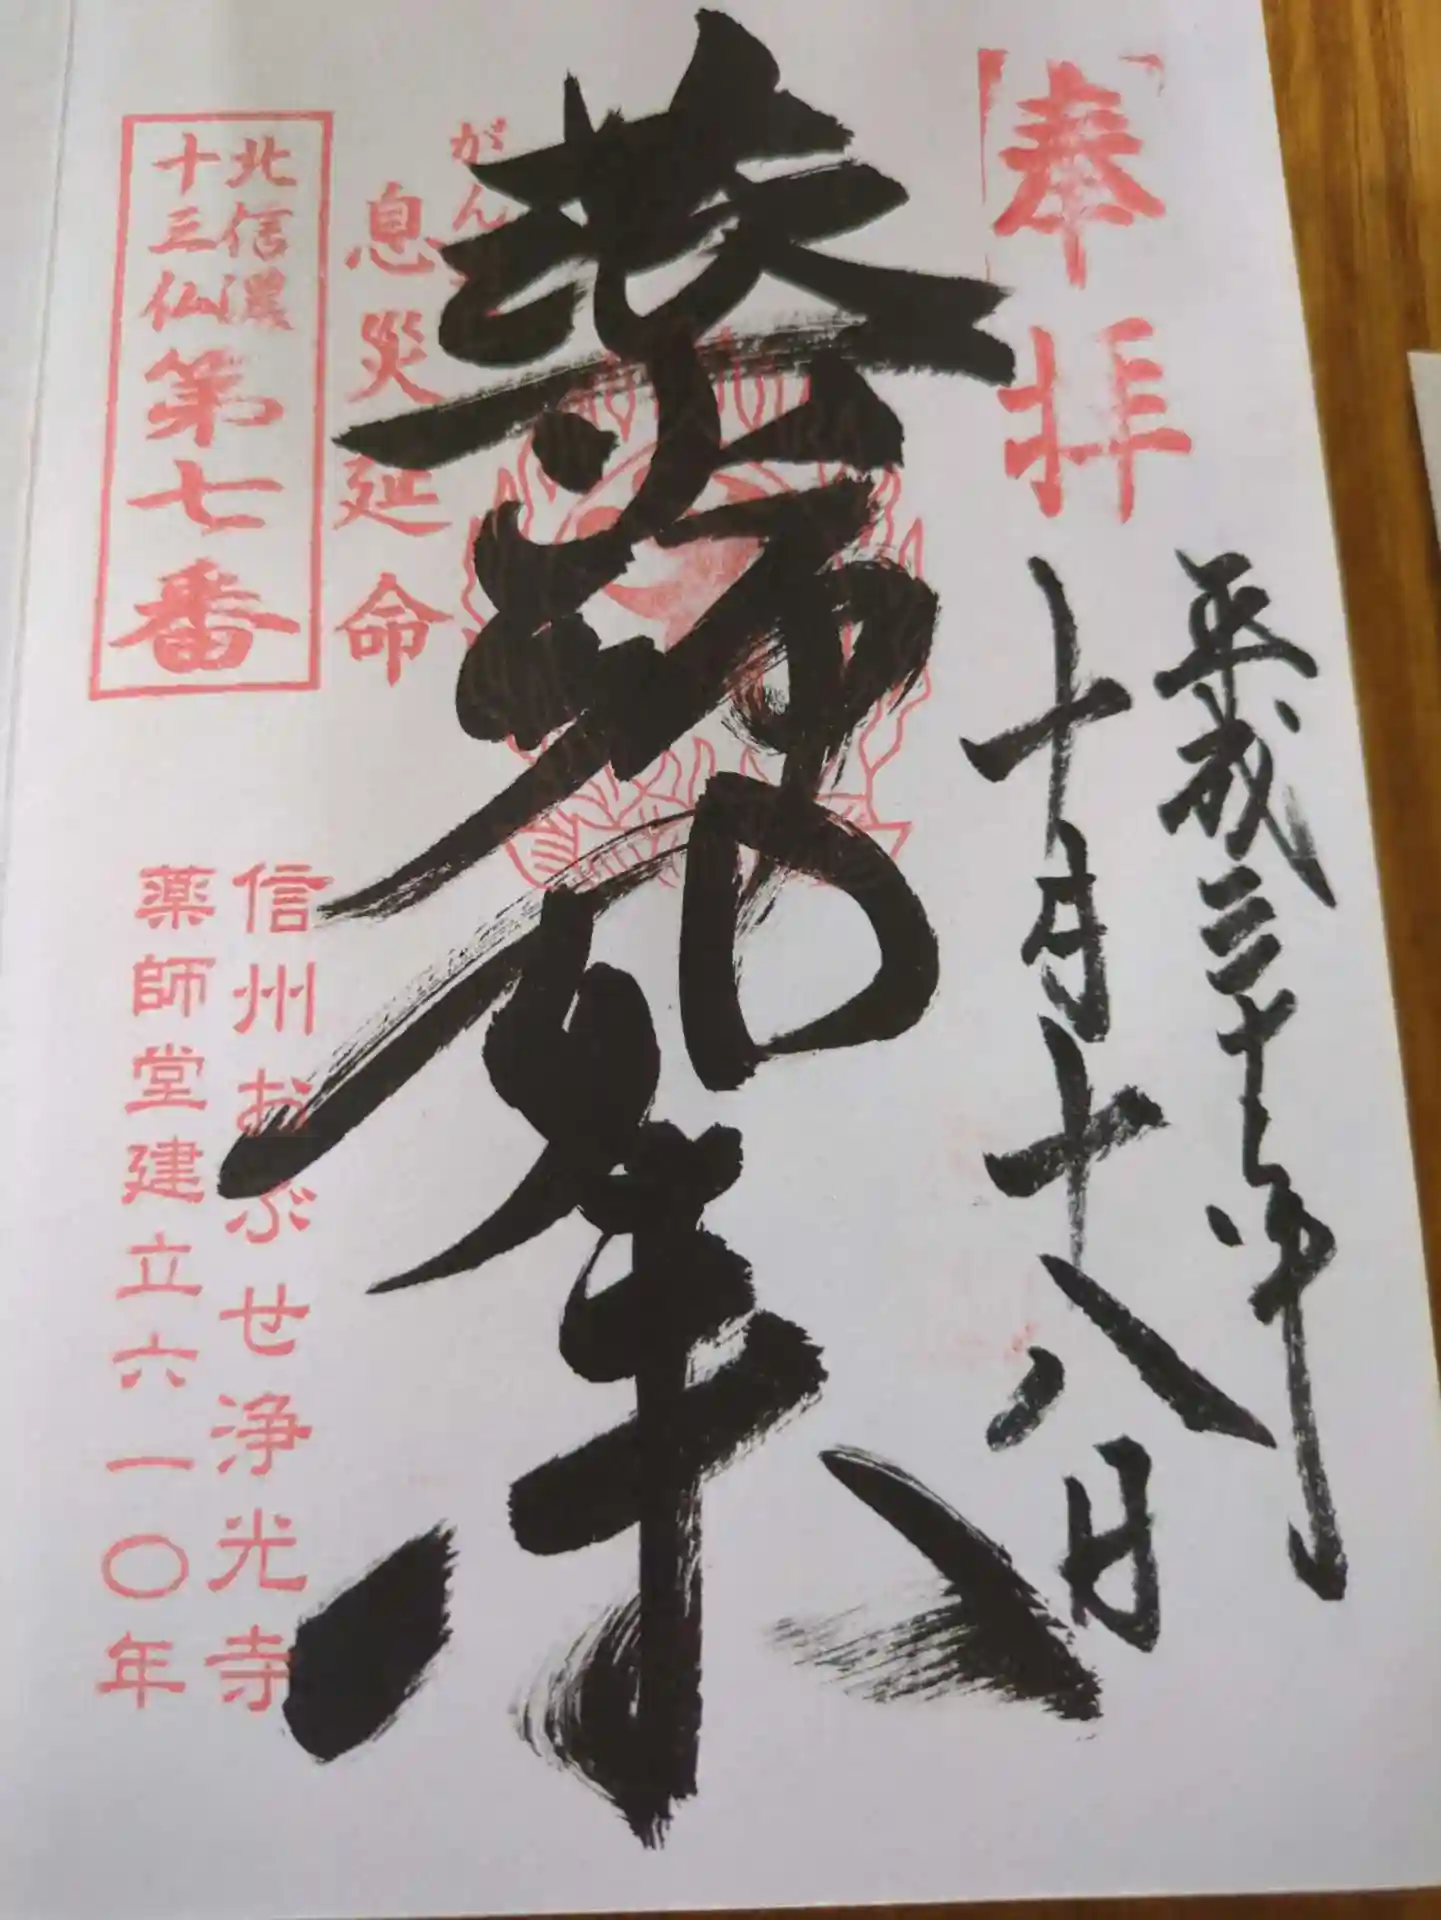 奉拝
平成三十年
十月十八日
薬師如来
がん
息災延命
北信濃
十三仏
第七番
信州おぶせ浄光寺
薬師堂建立六一〇年